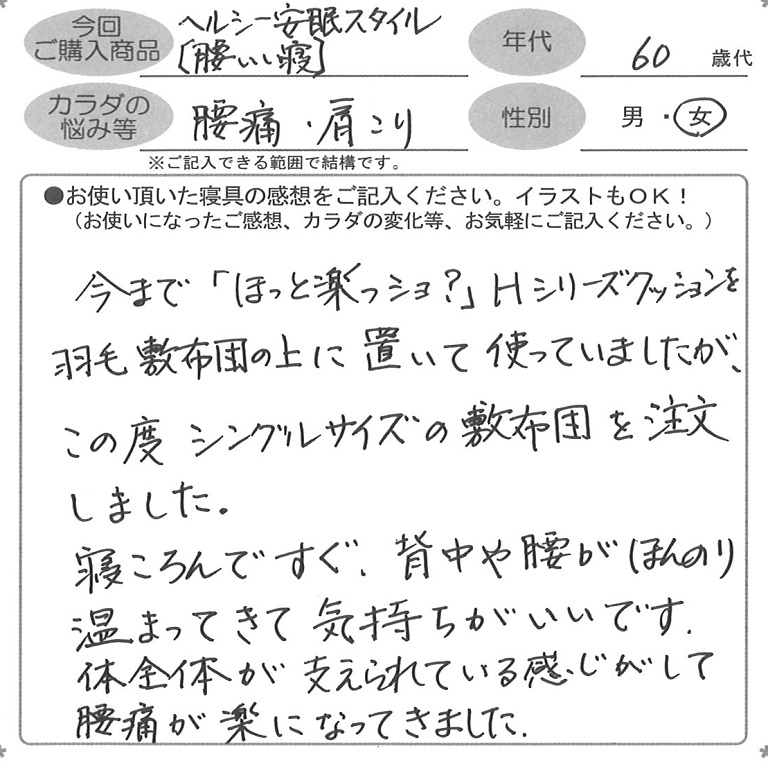 今回
ご購入商品
ヘルシー安眠スタイル
〔腰いい寝〕
年代
60 歳代
カラダの
悩み等
腰痛・肩こり
性別
男・女
※ご記入できる範囲で結構です。
●お使い頂いた寝具の感想をご記入ください。イラストもOK！
（お使いになったご感想、カラダの変化等、お気軽にご記入ください。）
今まで「ほっと楽っショ？」Hシリーズクッションを
羽毛敷布団の上に置いて使っていましたが、
この度シングルサイズの敷布団を注文
しました。
寝ころんですぐ、背中や腰がほんのり
温まってきて気持ちがいいです.
体全体が支えられている感じがして
腰痛が楽になってきました.